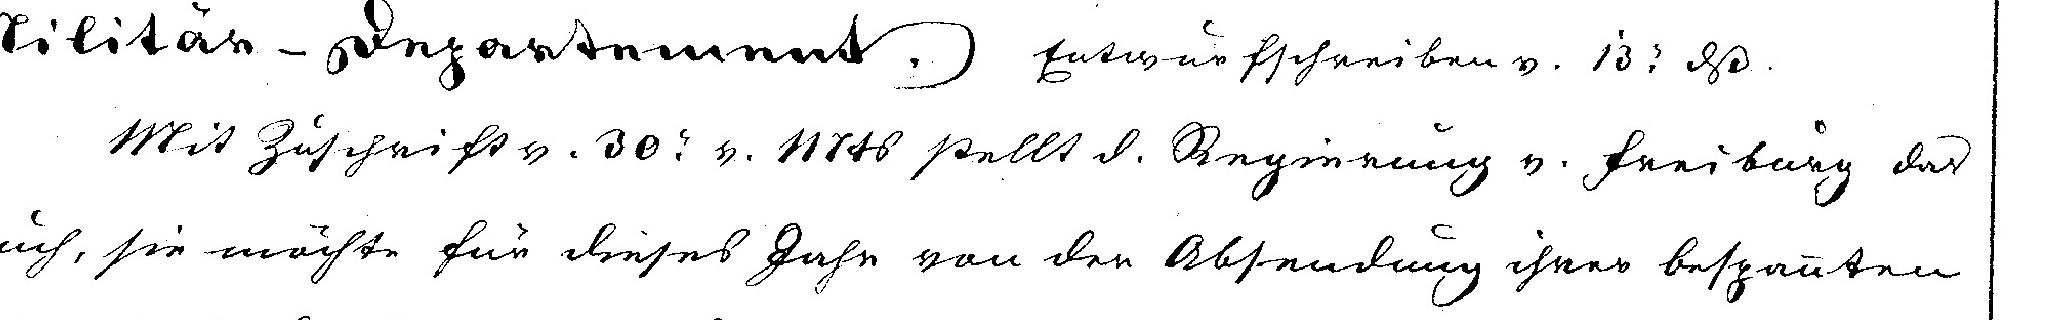 Militär-Departement.) Entwurfschreiben v. 13: dß.
Mit Zuschrift v. 30: v. Mts stellt d. Regierung v. Freiburg das
uch, sie möchte für dieses Jahr von der Absendung ihrer bespannten